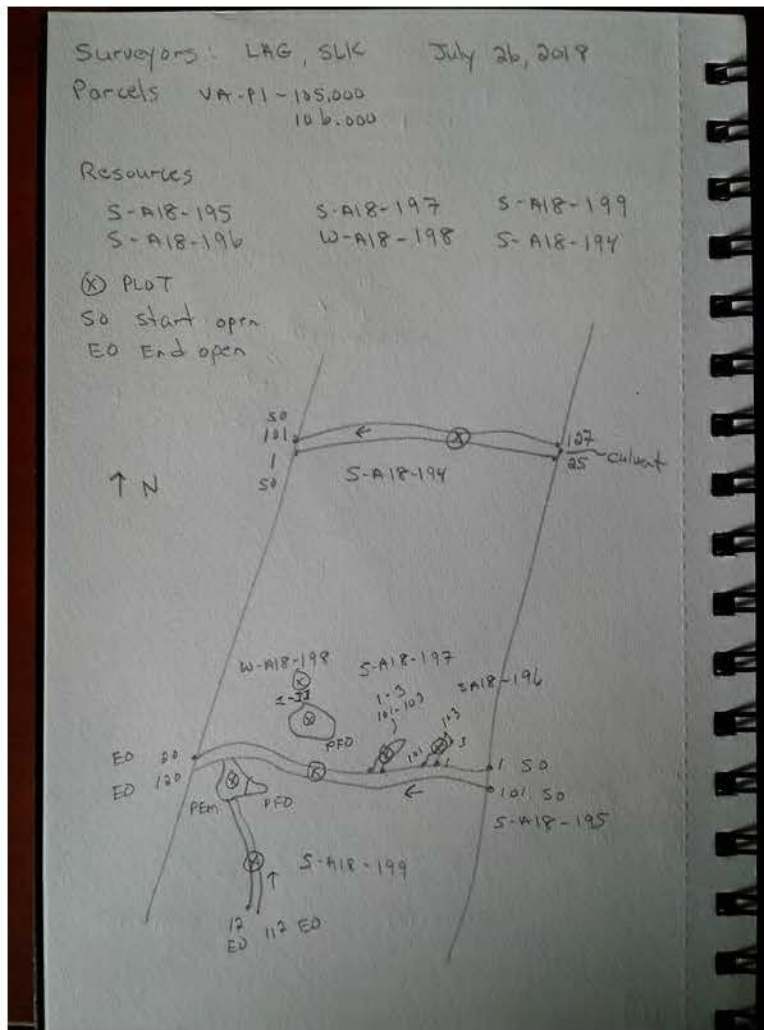 Surveyors: LAG, SLK July 26, 2018
Parcels VA-PI-105.000
106.000
Resources
S-A18-195 S-A18-197 S-A18-199
S-A18-196 W-A18-198 S-A18-194
X PLOT
SO Start open
EO End open
SO
101
1
SO
127
25 culvert
S-A18-194
↑ N
W-A18-198 S-A18-197 SA18-196
1-3
101-103
103
3
PFO
101
1
EO 20
EO 120
1 SO
101 SO
PEM PFO
S-A18-195
S-A18-199
12 112 EO
EO